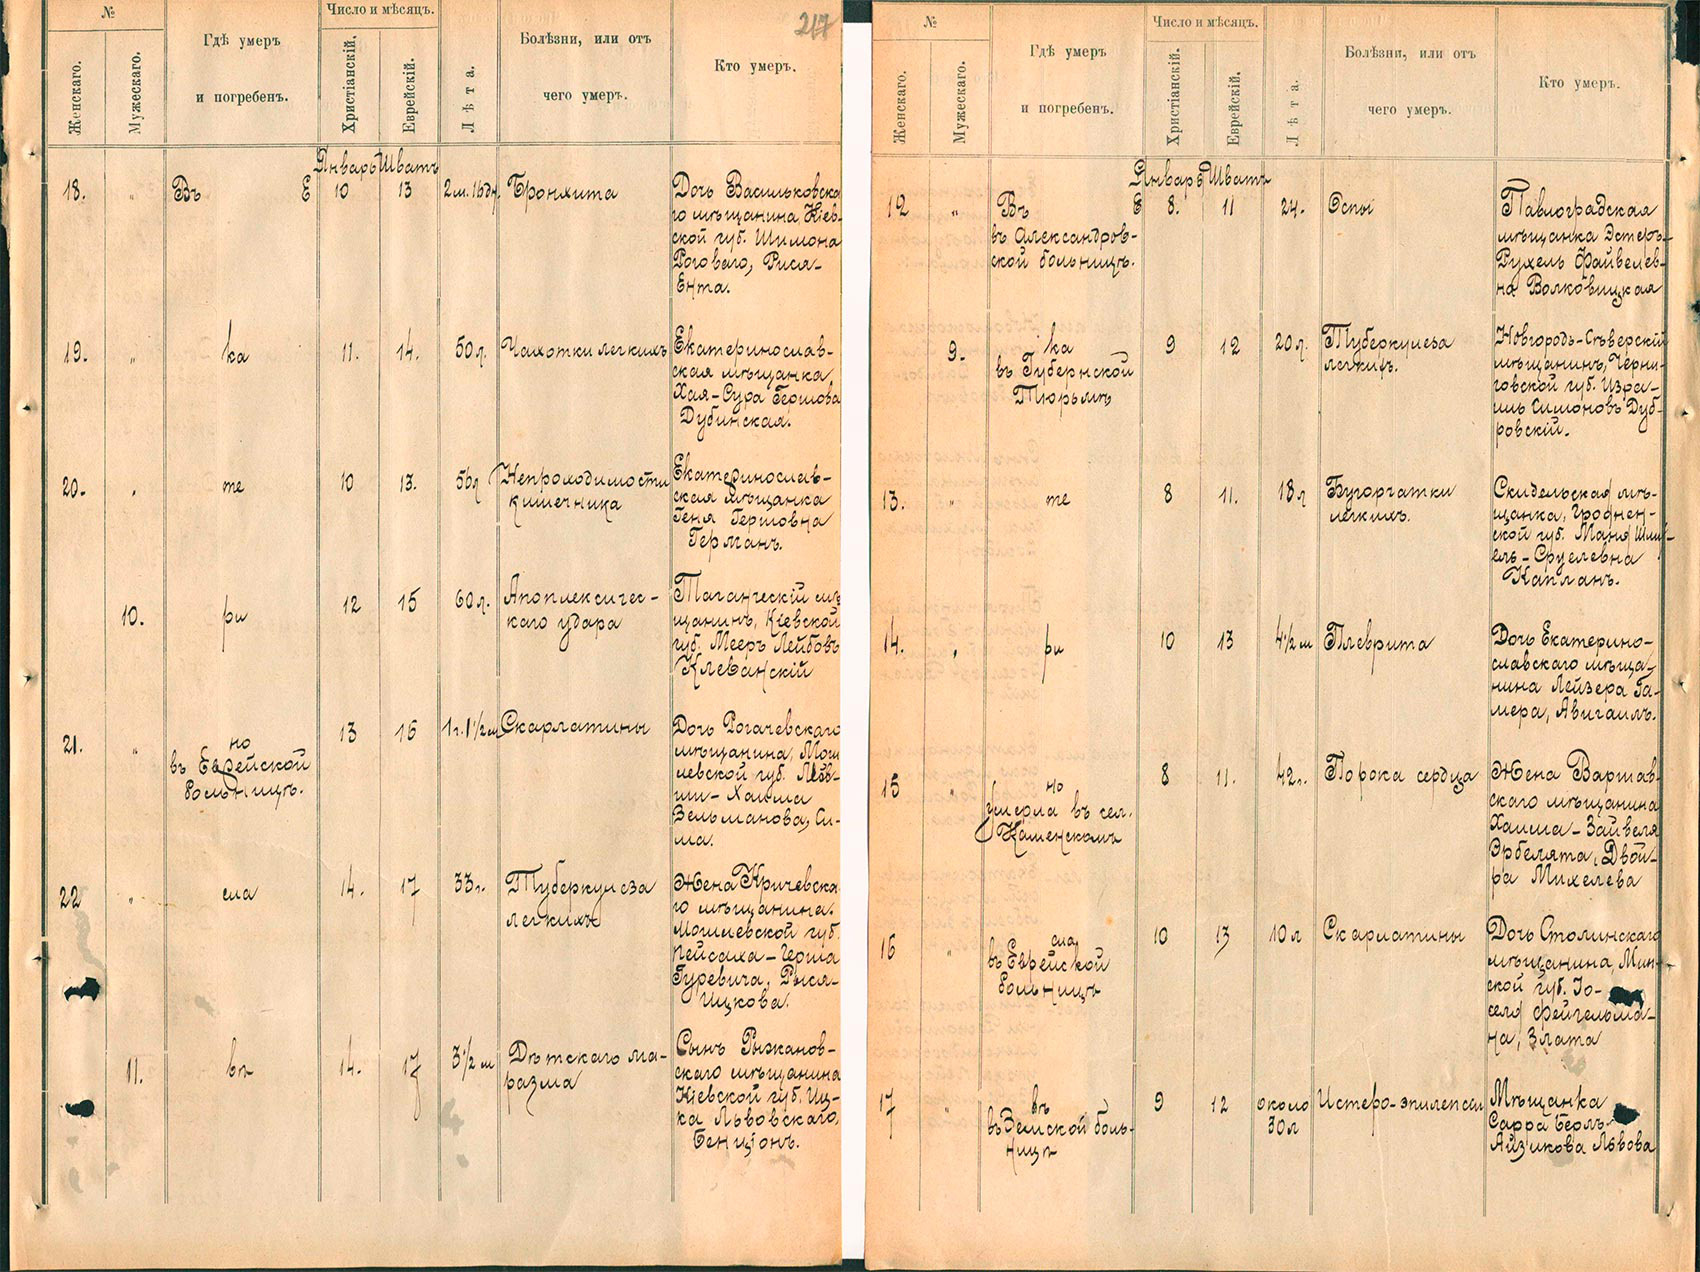 №
Женскаго.
Мужескаго.
Гдѣ умеръ
и погребенъ.
Число и мѣсяцъ.
Христіанскій.
Еврейскій.
Лѣта.
Болѣзни, или отъ
чего умеръ.
Кто умеръ.
217
Январь Шватъ
18. " Въ Е 10 13 2м. 16дн. Бронхита
Дочь Васильковска
го мѣщанина Кіев-
ской губ. Шимона
Роговаго, Рися-
Ента.
19. " ка 11. 14. 50л. Чахотки легкихъ
Екатеринослав-
ская мѣщанка
Хая-Сура Гершова
Дубинская.
20. " те 10 13. 56л Непроходимости
кишечника
Екатеринослав-
ская мѣщанка
Геня Гершовна
Германъ.
10. ри 12 15 60л. Апоплексичес-
каго удара
Таганческій мѣ
щанинъ, Кіевской
губ. Мееръ Лейбовъ
Клеванскій
21. " но
въ Еврейской
больницѣ.
13 16 1г. 1 1/2м Скарлатины
Дочь Рогачевскаго
мѣщанина, Моги
левской губ.
Хаима
Зельманова, Си-
ма.
22 " сла 14. 17 33г. Туберкулеза
легкихъ
Жена Кричевска
го мѣщанина.
Могилевской губ.
Пейсаха-Герша
Гуревича, Рыся-
Ицкова.
11. вѣ 14. 17 3 1/2 м Дѣтскаго ма-
разма
Сынъ Рыжанов-
скаго мѣщанина
Кіевской губ. Иц-
ка Львовскаго,
Бенціонъ.
№
Женскаго.
Мужескаго.
Гдѣ умеръ
и погребенъ.
Число и мѣсяцъ.
Христіанскій.
Еврейскій.
Лѣта.
Болѣзни, или отъ
чего умеръ.
Кто умеръ.
Январь Шватъ
12 " Въ Е
въ Александров-
ской больницѣ.
8. 11 24. Оспы
Павлоградская
мѣщанка Эстеръ-
Рухель Файвелев-
на Волковицкая
9. ка
въ Губернской
Тюрьмѣ
9 12 20л. Туберкулеза
легкихъ.
Новгородъ-Сѣверскій
мѣщанинъ, Черни-
говской губ. Изра-
иль Симоновъ Дуб-
ровскій.
13. " те 8 11. 18л Бугорчатки
легкихъ.
Скидельская мѣ-
щанка, Гроднен-
ской губ. Маня Шму-
ель-Сруелевна
Капланъ.
14. " ри 10 13 4 1/2 м Плеврита
Дочь Екатерино-
славскаго мѣща-
нина Лейзера Га-
мера, Авигаилъ.
15 " но
умерла въ сел.
Каменскомъ
8 11. 42г. Порока сердца
Жена Варшав-
скаго мѣщанина
Хаима-Зайвеля
Эрбелята, Двой-
ра Михелева
16 " сла
въ Еврейской
больницѣ
10 13 10л Скарлатины
Дочь Столинскаго
мѣщанина, Мин-
ской губ. Іо-
селя Фейгельма-
на, Злата
17 " въ
въ Земской боль-
ницѣ
9 12 около
30л
Истеро-эпилепсіи
Мѣщанка
Сарра Берлъ-
Айзикова Львова